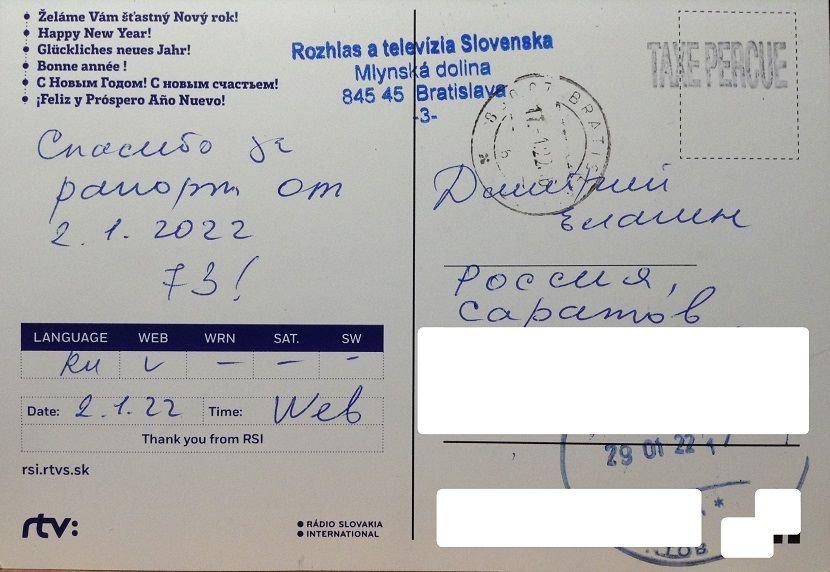 Želáme Vám šťastný Nový rok!
Happy New Year!
Glückliches neues Jahr!
Bonne année !
С Новым Годом! С новым счастьем!
¡Feliz y Próspero Año Nuevo!
Спасибо за
рапорт от
2.1.2022
73!
LANGUAGE WEB WRN SAT. SW
RU V — — –
Date: 2.1.22 Time: Web
Thank you from RSI
rsi.rtvs.sk
rtv:
RÁDIO SLOVAKIA
INTERNATIONAL
Rozhlas a televízia Slovenska
Mlynská dolina
845 45 Bratislava
-3-
TAXE PERCUE
BRATIS
17.-1.22
Дмитрий
Елагин
Россия,
Саратов
29 01 22 17